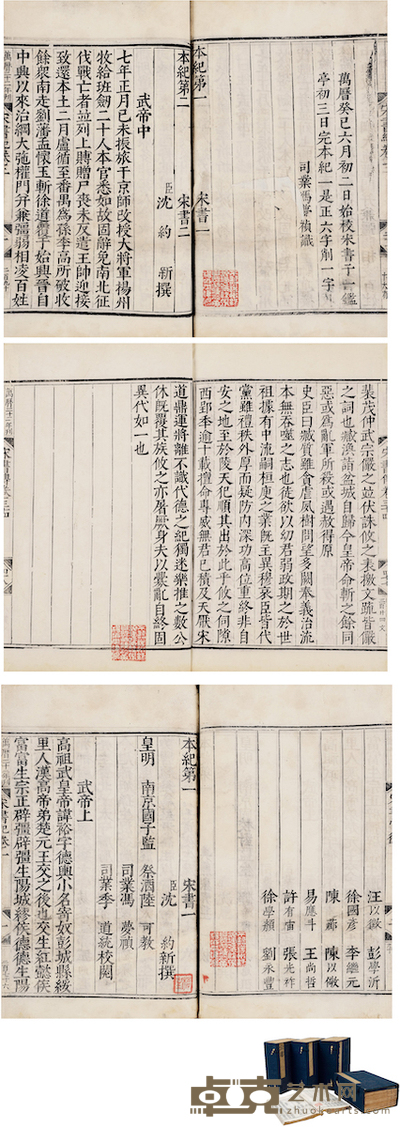 萬曆癸巳六月初二日始校宋書予一鑑
亭初三日完本紀一是正六字削一字
司業馮夢禎識
本紀第一
宋書一
本紀第二
宋書二
武帝中
臣沈約新撰
七年正月己未振旅于京師改授大將軍揚州
牧給班劒二十人本官悉如故固辭凡南北征
伐戰亡者並列上賻贈尸喪未反遣王帥迎接
致還本土二月盧循至番禺為孫季高所破收
餘衆南走劉藩孟懷玉斬徐道覆于始興晉自
中興以來治綱大弛權門并兼彊弱相凌百姓
萬曆二十二年刊
裴茂仲武宗儼之並伏誅攸之表檄文疏皆儼
之詞也臧渙詣盆城自歸今皇帝命斬之餘同
惡或為亂軍所殺或遇赦得原
史臣曰臧質雖貪虐夙樹問望多闕奉義治流
本無吞噬之志也徒欲以幼君弱政期之於世
祖據有中流嗣桓庾之業既主異穆哀臣皆代
黨雖禮秩外厚而疑防內深功高位重終非自
安之地至於陵天犯順其出於此乎攸之伺隙
西郢年逾十載擅命專威無君已積及天厭宋
道鼎運將離不識代德之紀獨迷樂推之數公
休既覆其族攸之亦屠厥身夫以釁亂自終固
異代如一也
萬曆二十二年刊
汪以徵 彭學沂
徐國彥 李繼元
陳鼎 陳以徵
易應斗 王尚哲
許有宙 張光祚
徐學頵 劉永豐
本紀第一
宋書一
臣沈約新撰
皇明南京國子監祭酒陸可教
司業馮夢禎
司業季道統校閱
武帝上
高祖武皇帝諱裕字德輿小名寄奴彭城縣綏
里人漢高帝弟楚元王交之後也交生紅懿侯
富富生宗正辟彊辟彊生陽城繆侯德德生陽
宋書紀卷一
卓克艺术网